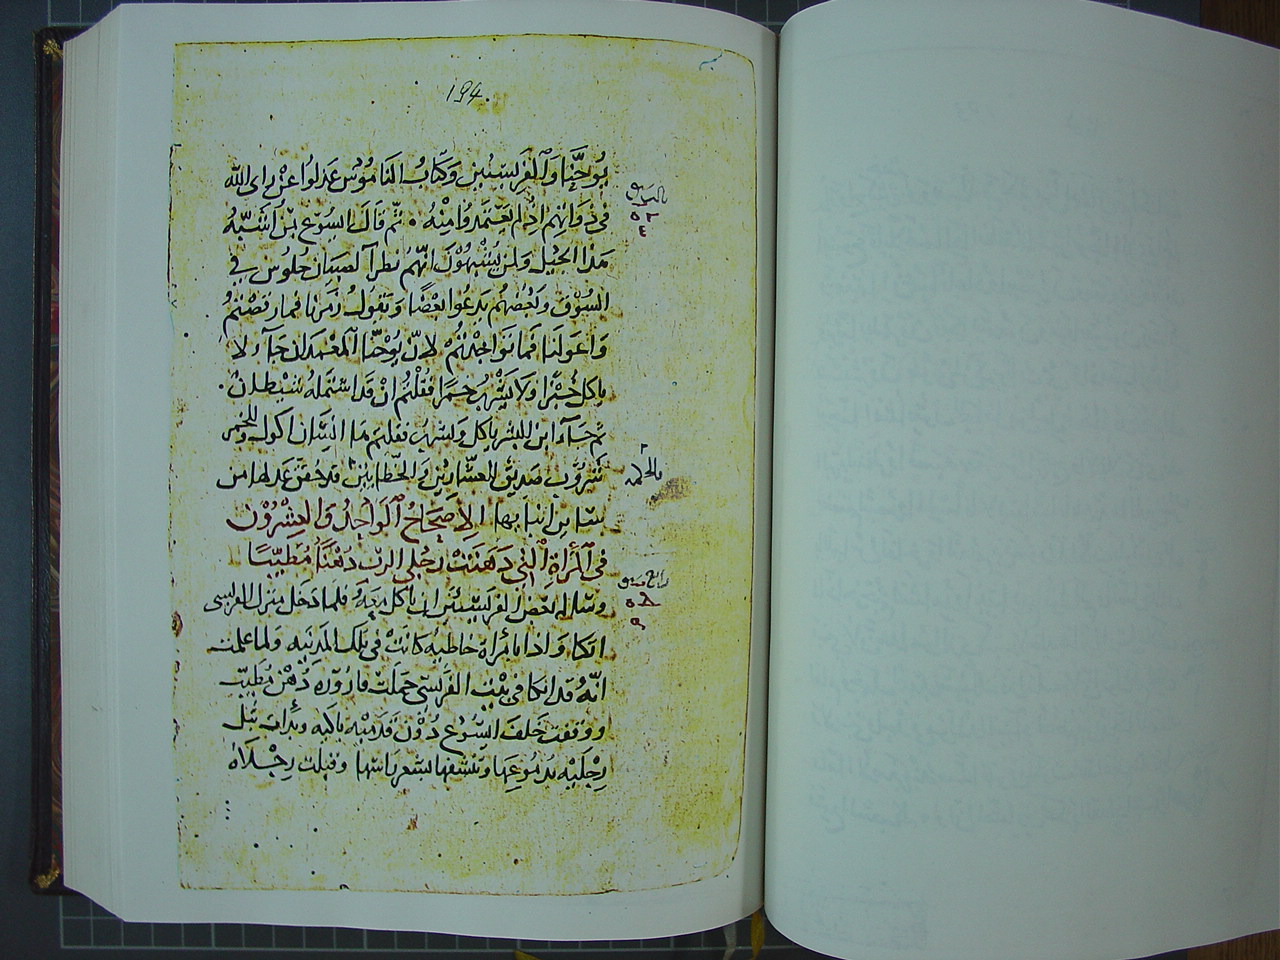 194.
يُوحَنَّا وَالفَرِيسِيُين وَكتّابُ النَامُوُس عَدَلوُا عنْ راى الله
فى ذوَاتهِم اذلم يَعتَمدوُا مِنْهُ . ثم قالَ اليسُوعَ بمَن اُشَبّهُ
هَذا الجيْل وَلمن يُشْبهُوُن انّهُم نظراً لصبيَان جُلوُس في
السُوْق وبَعْضهُم يدعُوا بَعْضًا وَتقولُ زمَرنا فما رقصْتمُ
وَاعولنا فما نوَاجِدْتمُ لانّ يُوُحَنّا المعْمدَان جَاءَ لا
ياكل خُبْزًا وَلا يَشْربُ خمرًا فقُلْتُم انْ قد اشتملهُ شيْطان.
ثم جَاءَ ابن البشر ياكل ويشرب فقلتم هَا انسَان اكول وللخمر
شروُب صَديق العشّاريْن والخطايين قد حُقق عَدلها من
سَاير ابنايها الاِصحَاحُ الوَاحِدُ وَالعِشْرُوُن
فى المرأةِ التى دَهَنتْ رجْلي الربّ دُهْنًا مُطيّبًا
وسَاله بعْض الفريسيّين ان ياكل معهُ فلما دَخل منزل الفريسى
اتكا وَاذا بامرأة خاطيه كانتْ فى تلك المدينه ولما علمت
انّهُ قد اتكا فى بيْت الفريسى حَملت قارُوره دُهْن مُطيّب
ووقفت خَلفَ اليسُوُع دُوْن قدَميْه باكيه وبدات تبُل
رِجْليْه بدمُوُعِها وتنشفها بشعر رَاسها وقبلت رِجْلاهُ
بالحكمه